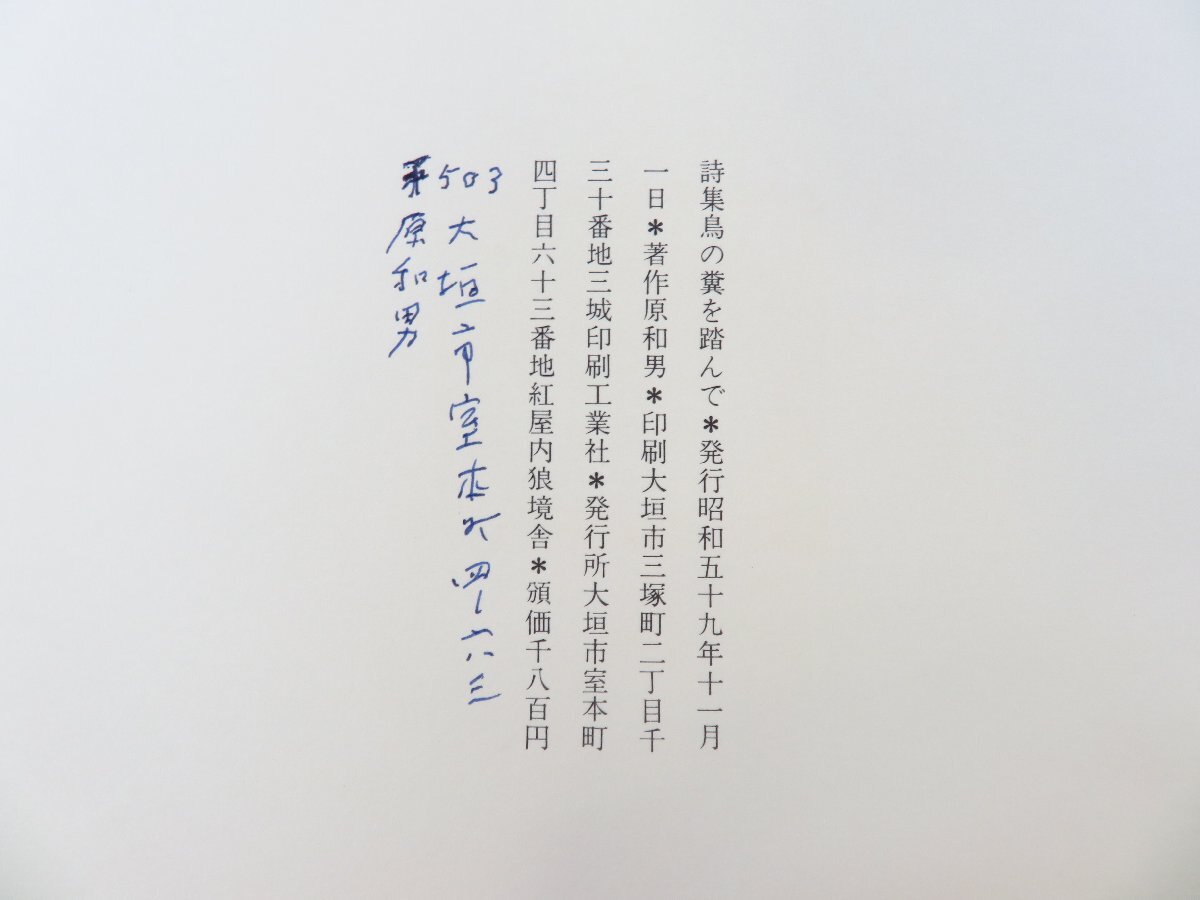 詩集鳥の糞を踏んで＊発行昭和五十九年十一月
一日＊著作原和男＊印刷大垣市三塚町二丁目千
三十番地三城印刷工業社＊発行所大垣市室本町
四丁目六十三番地紅屋内狼境舎＊頒価千八百円
503 大垣市室本町四ー六三
原和男